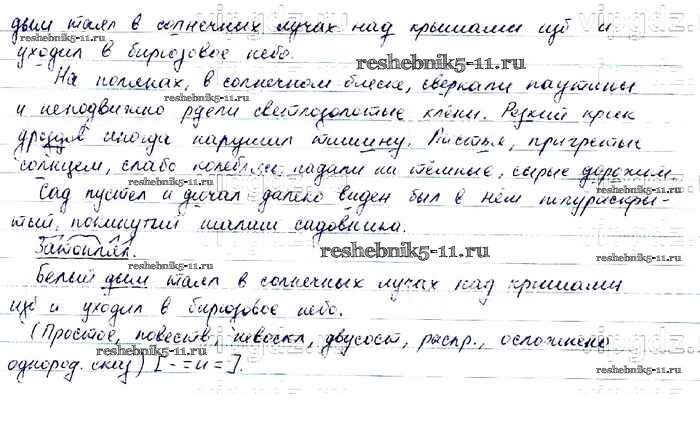 дым таял в солнечных лучах над крышами изб и
уходил в бирюзовое небо.
reshebnik5-11.ru
На полянах, в солнечном блеске, сверкали паутины
reshebnik5-11.ru
reshebnik5-11.ru
и неподвижно рдели светлозолотые клёны. Резкий крик
дроздов иногда нарушил тишину. Листья, пригретые
reshebnik5-11.ru
солнцем, слабо колебл падали на тёмные, сырые дорожки.
Сад пустел и дичал далеко виден был в нём полураскры-
тый, покинутый шалаш садовника.
Затоплял.
reshebnik5-11.ru
reshebnik5-11.ru
Белый дым таял в солнечных лучах над крышами
изб и уходил в бирюзовое небо.
(Простое, повеств, невоскл, двусост, распр., осложнено
reshebnik5-11.ru
однород. сказ) [- = и =].
reshebnik5-11.ru